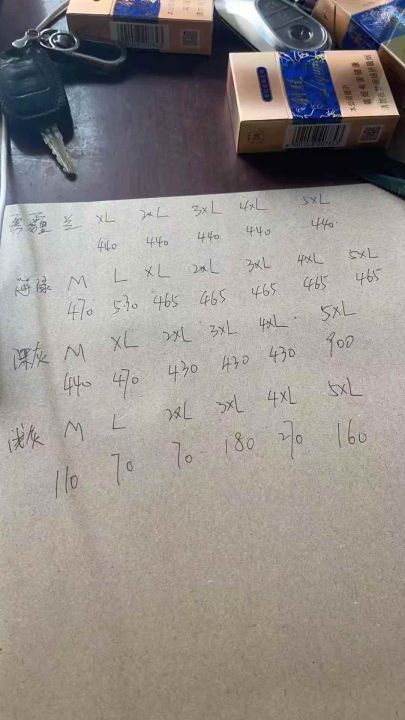 雾霾兰 XL 2XL 3XL 4XL 5XL
440 440 440 440 440
M L XL 2XL 3XL 4XL 5XL
470 530 465 465 465 465 465
深灰 M XL 2XL 3XL 4XL 5XL
440 470 430 430 430 900
浅灰 M L 2XL 3XL 4XL 5XL
110 70 70 180 270 160